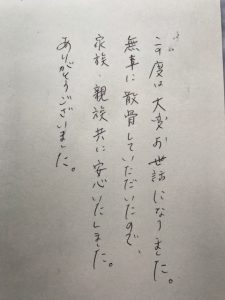 この度は大変お世話になりました。
無事に散骨していただいたので、
家族・親族共に安心いたしました。
ありがとうございました。